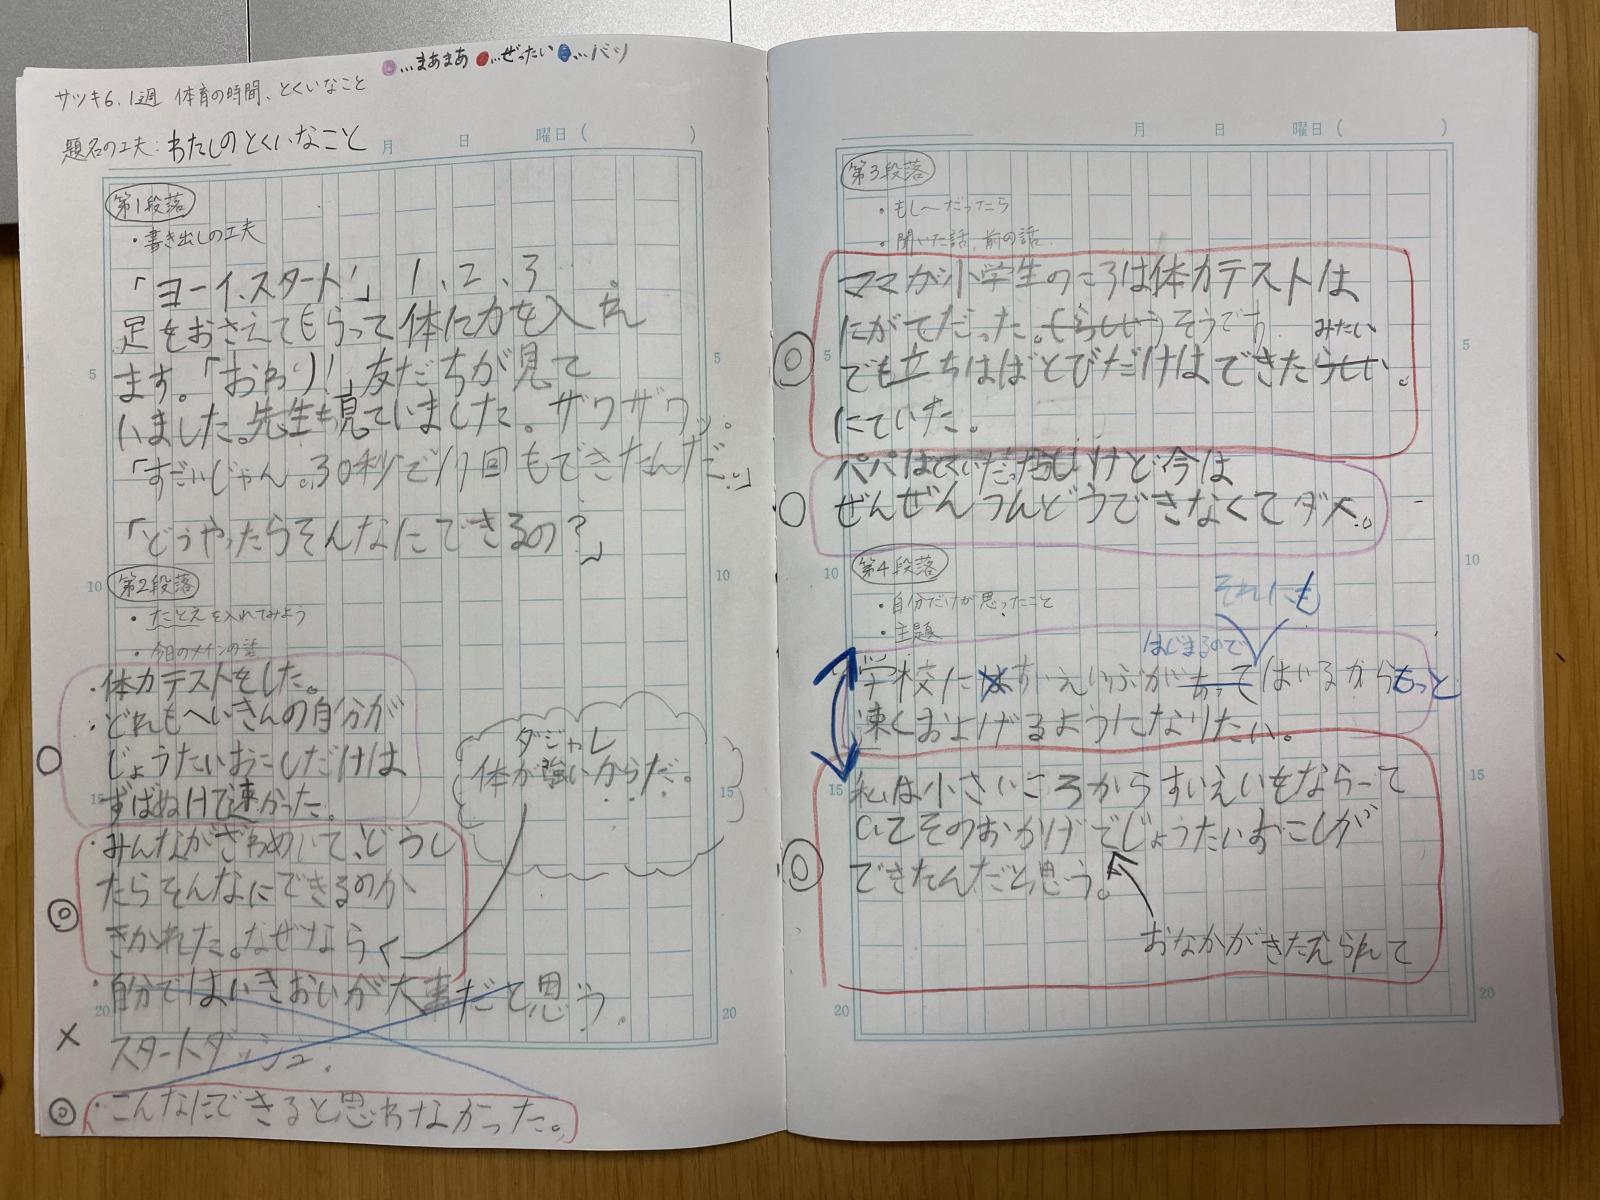 …まあまあ …ぜったい …バツ
サツキ6.1週 体育の時間、とくいなこと
題名の工夫:わたしのとくいなこと
月 日 曜日( )
第1段落
・書き出しの工夫
「ヨーイ、スタート!」 1、2、3…
足をおさえてもらって体に力を入れ
ます。「おわり!」友だちが見て
いました。先生も見ていました。ザワザワッ。
「すごいじゃん。30秒で17回もできたんだ。」
「どうやったらそんなにできるの?」
第2段落
・たとえを入れてみよう
・今日のメインの話
・体力テストをした。
・どれもへいきんの自分が
じょうたいおこしだけは
ずばぬけて速かった。
・みんながざわめいて、どうし
たらそんなにできるのか
きかれた。なぜなら<
ダジャレ
体が強いからだ。
・自分ではいきおいが大事だと思う。
× スタートダッシュ.
・こんなにできると思わなかった。
5
10
15
20
5
10
15
20
月 日 曜日( )
第3段落
・もし〜だったら
・聞いた話、前の話
ママが小学生のころは体力テストは
にがてだった。そうです みたい
でも立ちはばとびだけはできたらしい。
にていた。
パパはとくいだったらしいけど今は
ぜんぜんうんどうできなくてダメ。
第4段落
・自分だけが思ったこと
・主題
それにも
はじまるので
学校にはすいえいぶがあってはいるからもっと
速くおよげるようになりたい。
私は小さいころからすいえいをならって
いてそのおかげでじょうたいおこしが
できたんだと思う。
おなかがきたえられて
5
10
15
20
5
10
15
20